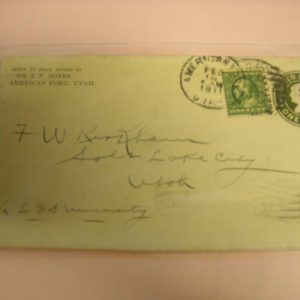 After 10 days, return to
DR. J. F. NOYES,
AMERICAN FORK, UTAH.
AMERICAN
FEB
191
F W Kirkham
Salt Lake City
Utah
L D S University